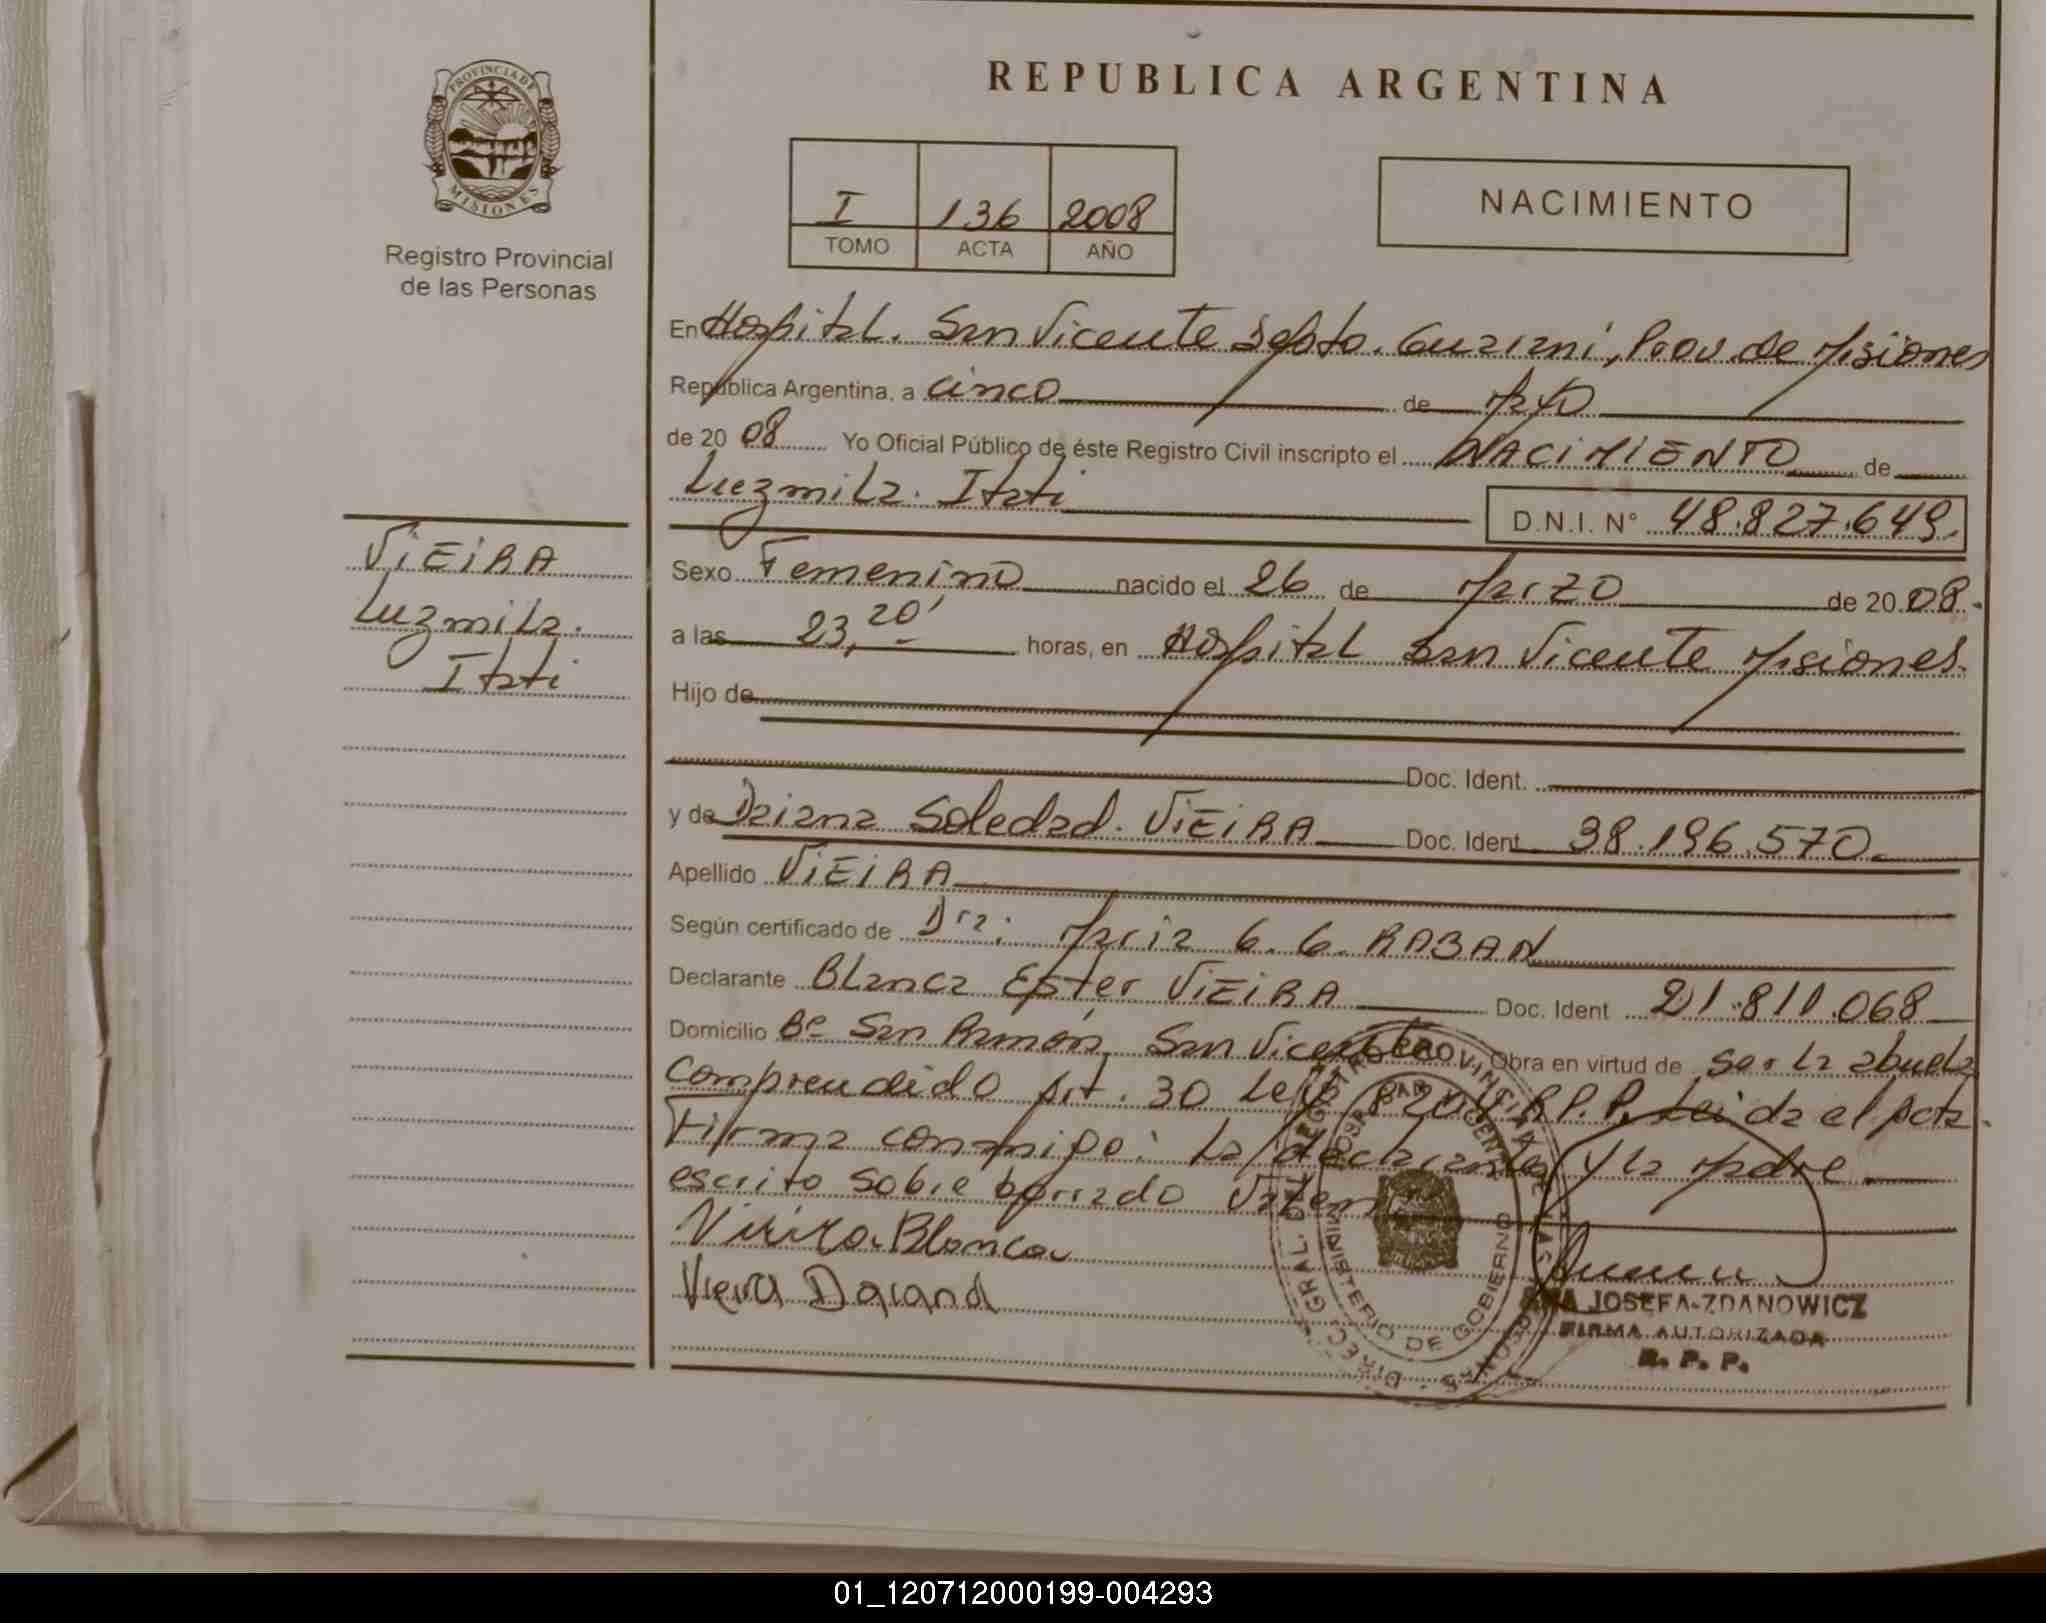 PROVINCIA DE
MISIONES
Registro Provincial
de las Personas
VIEIRA
Luzmila.
Itati
REPUBLICA ARGENTINA
I 136 2008
TOMO ACTA AÑO
NACIMIENTO
En Hospital. San Vicente Depto. Guarani, Prov. de Misiones
República Argentina, a cinco de Mayo
de 20 08 Yo Oficial Público de éste Registro Civil inscripto el NACIMIENTO de
Luzmila. Itati
D.N.I. N° 48.827.649.
Sexo Femenino nacido el 26 de Marzo de 20 08.
a las 23,20' horas, en Hospital San Vicente Misiones.
Hijo de
Doc. Ident.
y de Daiana Soledad. VIEIRA Doc. Ident 38.196.570.
Apellido VIEIRA
Según certificado de Dra: Maria G. G. RABAN
Declarante Blanca Ester VIEIRA Doc. Ident 21.811.068
Domicilio Bº San Ramón, San Vicente Obra en virtud de ser la abuela
comprendido Art. 30 Ley R.P.P. Leida el Acta.
Firma conmigo: La declarante y la Madre
escrito sobre borrado Valen
Blanca
Vieira Daiana
DIREC. GRAL. DEL REGISTRO PROVINCIAL DE LAS PERSONAS
MINISTERIO DE GOBIERNO
JOSEFA ZDANOWICZ
FIRMA AUTORIZADA
R. P. P.
01_120712000199-004293